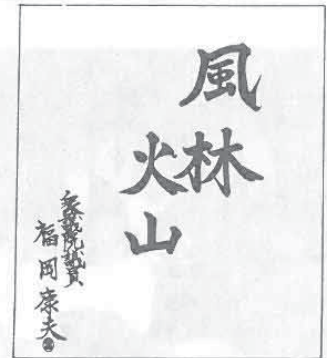 風林
火山
衆議院議員
福岡康夫